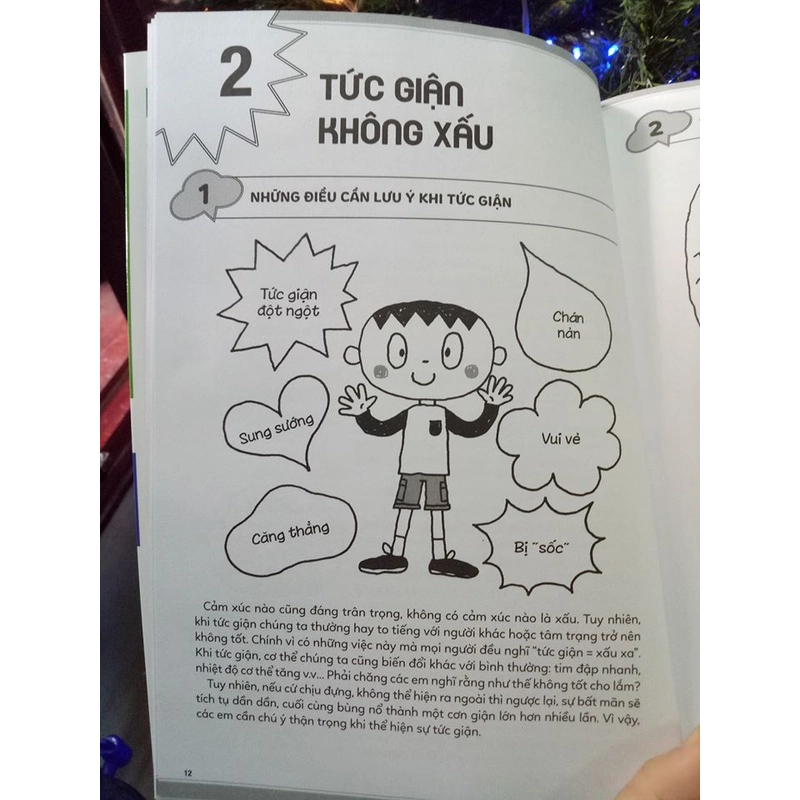 2
TỨC GIẬN
KHÔNG XẤU
1
NHỮNG ĐIỀU CẦN LƯU Ý KHI TỨC GIẬN
Tức giận
đột ngột
Chán
nản
Sung sướng
Vui vẻ
Căng thẳng
Bị "sốc"
Cảm xúc nào cũng đáng trân trọng, không có cảm xúc nào là xấu. Tuy nhiên,
khi tức giận chúng ta thường hay to tiếng với người khác hoặc tâm trạng trở nên
không tốt. Chính vì có những việc này mà mọi người đều nghĩ "tức giận = xấu xa".
Khi tức giận, cơ thể chúng ta cũng biến đổi khác với bình thường: tim đập nhanh,
nhiệt độ cơ thể tăng v.v... Phải chăng các em nghĩ rằng như thế không tốt cho lắm?
Tuy nhiên, nếu cứ chịu đựng, không thể hiện ra ngoài thì ngược lại, sự bất mãn sẽ
tích tụ dần dần, cuối cùng bùng nổ thành một cơn giận lớn hơn nhiều lần. Vì vậy,
các em cần chú ý thận trọng khi thể hiện sự tức giận.
12
2